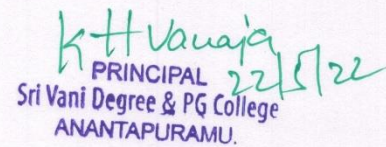 K H Vanaja
22/5/22
PRINCIPAL
Sri Vani Degree & PG College
ANANTAPURAMU.